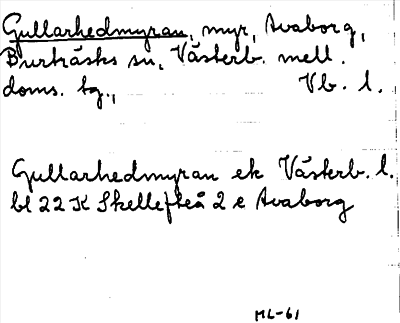 Gullarhedmyran, myr, Avaborg,
Burträsks sn, Västerb. mell.
doms. tg., Vb. l.
Gullarhedmyran ek Västerb. l.
bl 22 K Skellefteå 2 e Avaborg
ML-61